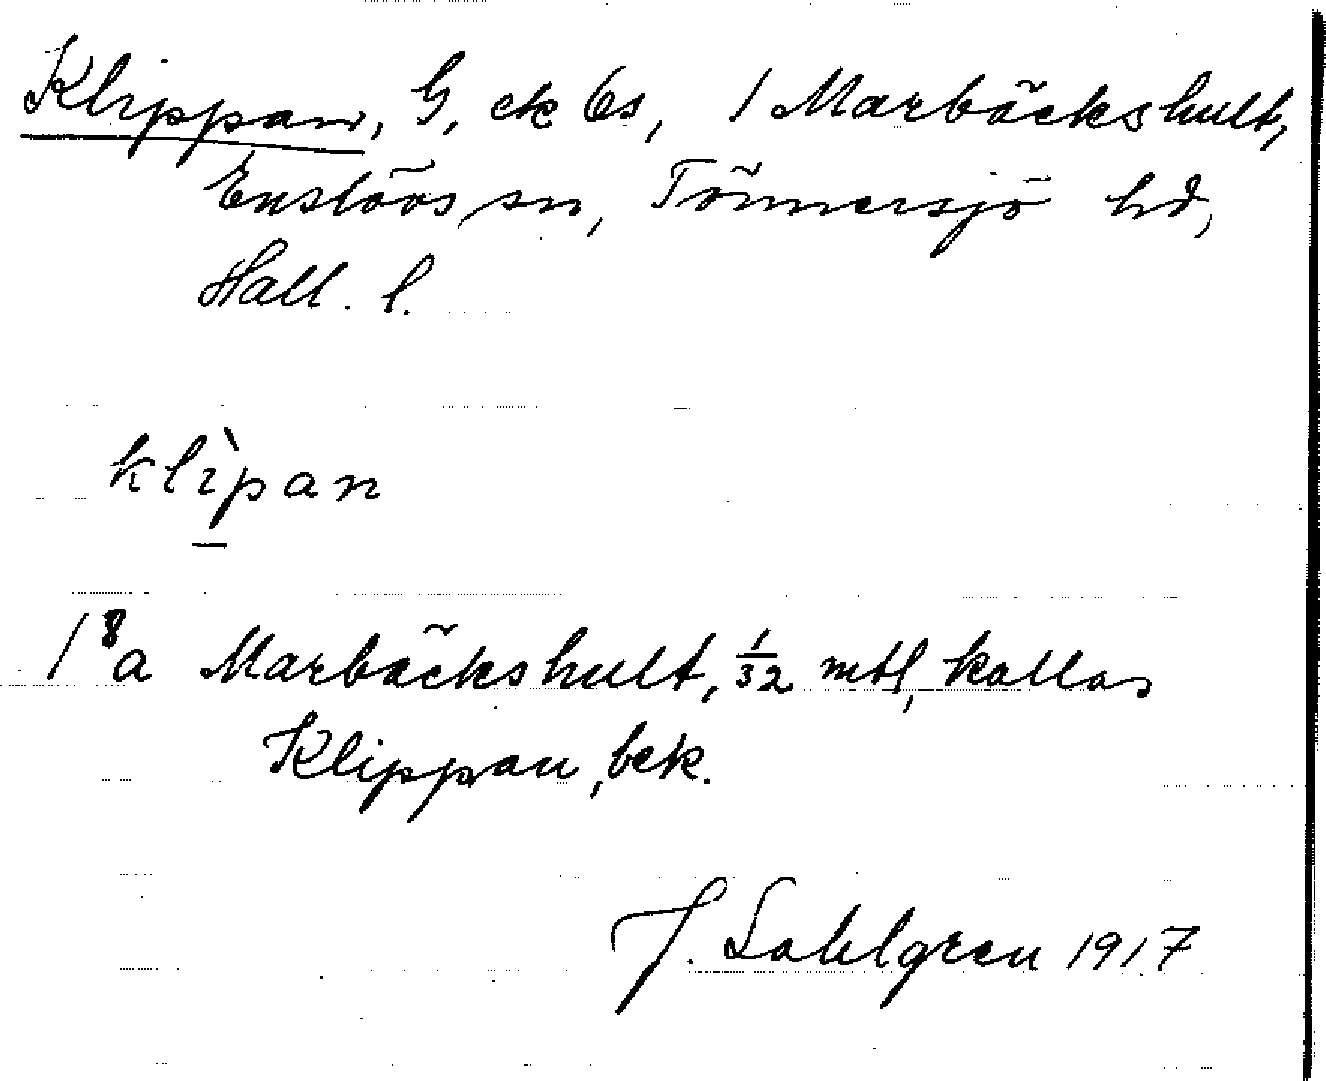 Klippan, G, ek 6s, 1 Marbäckshult,
Enslövs sn, Tönnersjö hd,
Hall. l.
klìpan
1 8a Marbäckshult, 1/32 mtl, kallas
Klippan, bek.
J. Sahlgren 1917